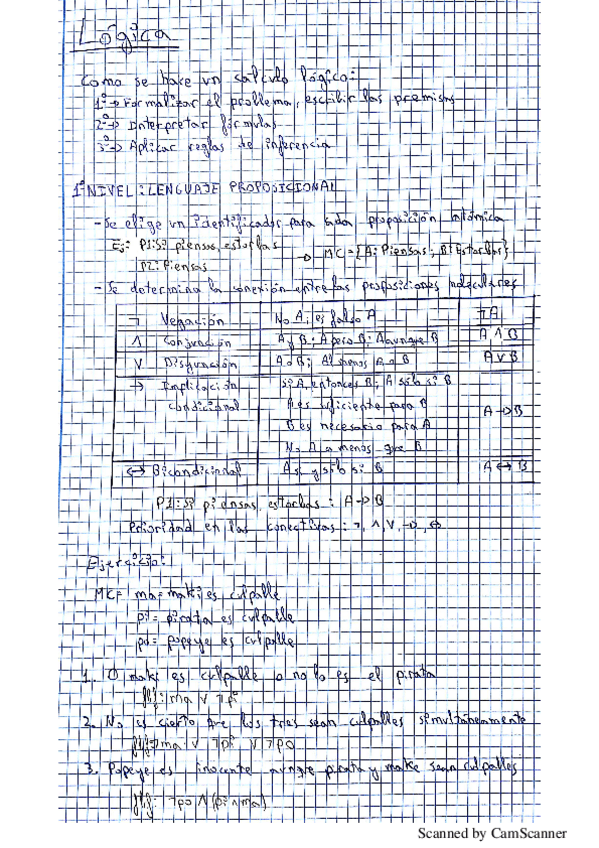 Lógica
Como se hace un cálculo lógico:
1º→ Formalizar el problema, escribir las premisas
2º→ Interpretar fórmulas
3º→ Aplicar reglas de inferencia
1º NIVEL: LENGUAJE PROPOSICIONAL
- Se elige un identificador para cada proposición atómica
Ej: P1: Si piensas, estorbas
P2: Piensas → MC = {A: Piensas; B: Estorbas}
- Se determina la conexión entre las proposiciones moleculares
¬ Negación No A; es falso A ¬A
∧ Conjunción A y B; A pero B; A aunque B A ∧ B
∨ Disyunción A o B; Al menos A o B A ∨ B
→ Implicación si A, entonces B; A sólo si B
condicional A es suficiente para B A → B
B es necesario para A
No A a menos que B
↔ Bicondicional A si y sólo si B A ↔ B
P1: Si piensas, estorbas: A → B
Prioridad en las conectivas: ¬, ∧, ∨, →, ↔
Ejercicio:
MC = ma = maki es culpable
pi = pirata es culpable
po = popeye es culpable
1. O maki es culpable o no lo es el pirata
fbf: ma ∨ ¬pi
2. No es cierto que los tres sean culpables simultáneamente
fbf: ¬ma ∨ ¬pi ∨ ¬po
3. Popeye es inocente aunque pirata y make sean culpables
fbf: ¬po ∧ (pi ∧ ma)
Scanned by CamScanner